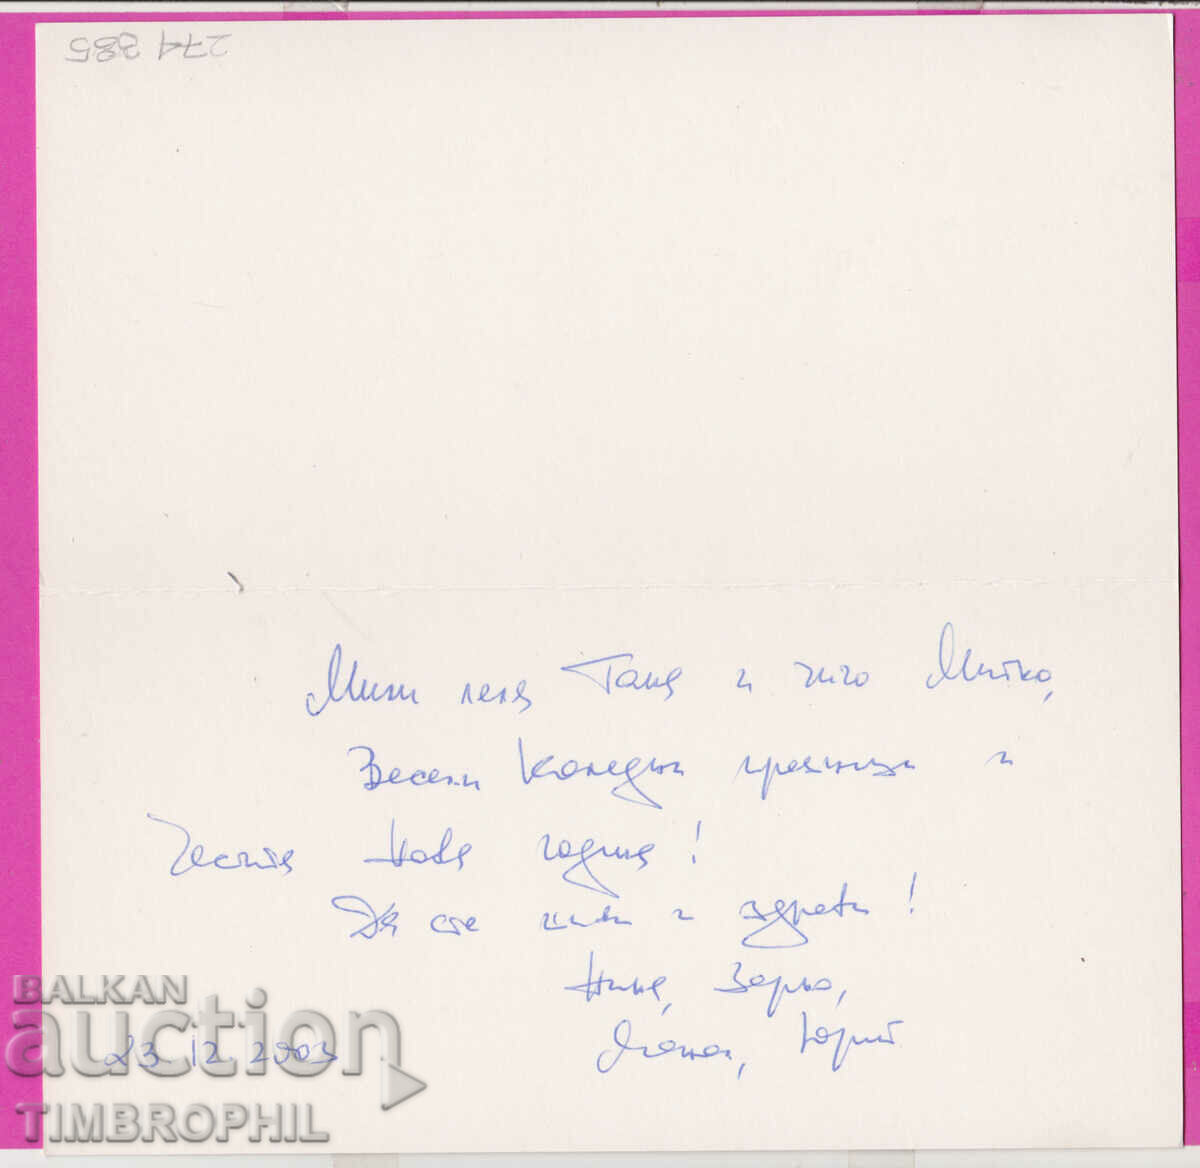 274 385
Мили леля Таня и чичо Митко,
Весели Коледни празници и
Честита Нова година!
Да сте живи и здрави!
Нина, Зарко,
Юрий
23.12.2003
BALKAN
auction
TIMBROPHIL